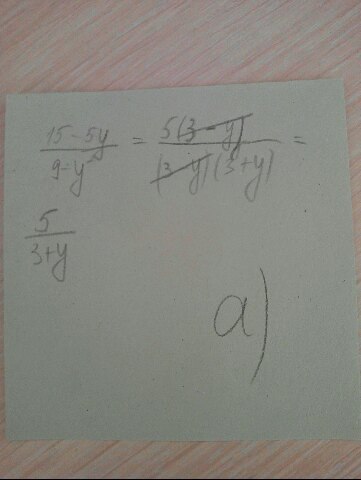 15-5y / 9-y² = 5(3-y) / (3-y)(3+y) =
5 / 3+y
a)